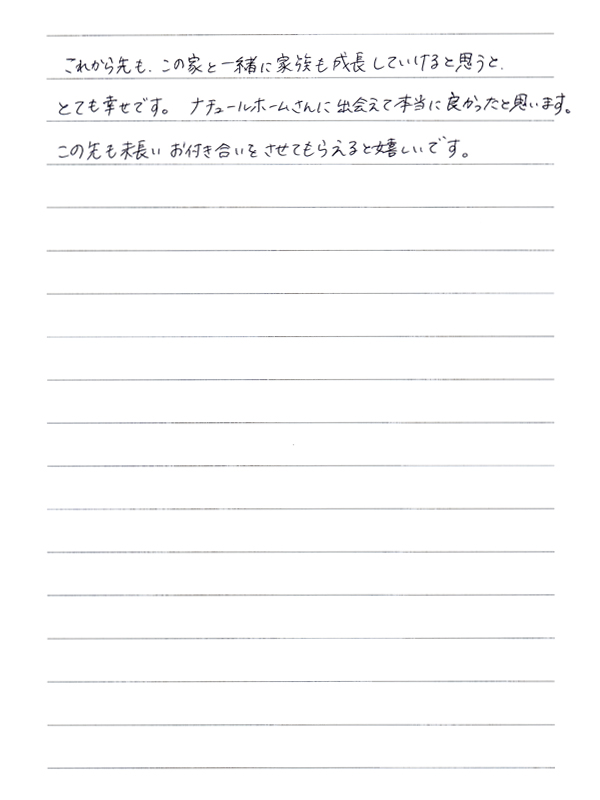 これから先も、この家と一緒に家族も成長していけると思うと、
とても幸せです。 ナチュールホームさんに出会えて本当に良かったと思います。
この先も末長い お付き合いをさせてもらえると嬉しいです。